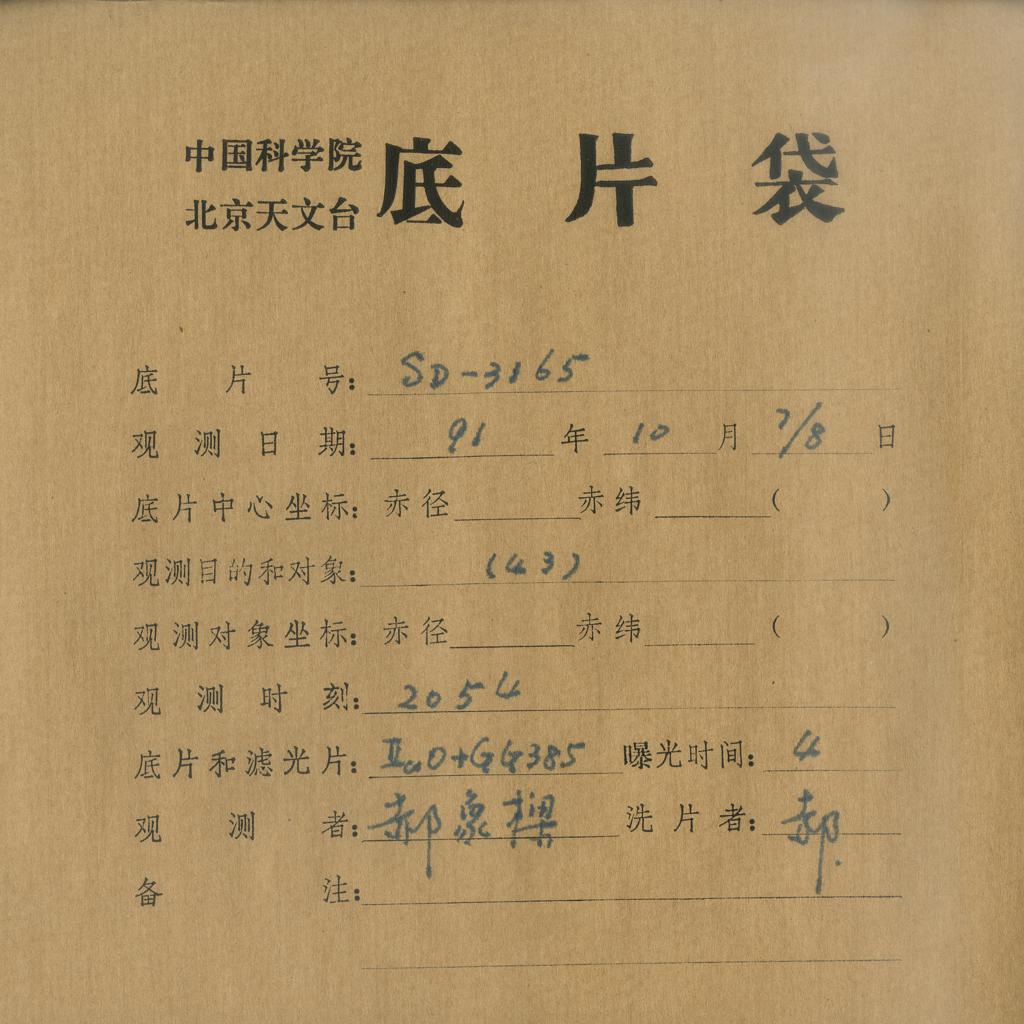 中国科学院
北京天文台 底片袋
底片号: SD-3165
观测日期: 91 年 10 月 7/8 日
底片中心坐标: 赤径 赤纬 ( )
观测目的和对象: (43)
观测对象坐标: 赤径 赤纬 ( )
观测时刻: 2054
底片和滤光片: IIaO+GG385 曝光时间: 4
观测者: 郝象樑 洗片者: 郝
备注: